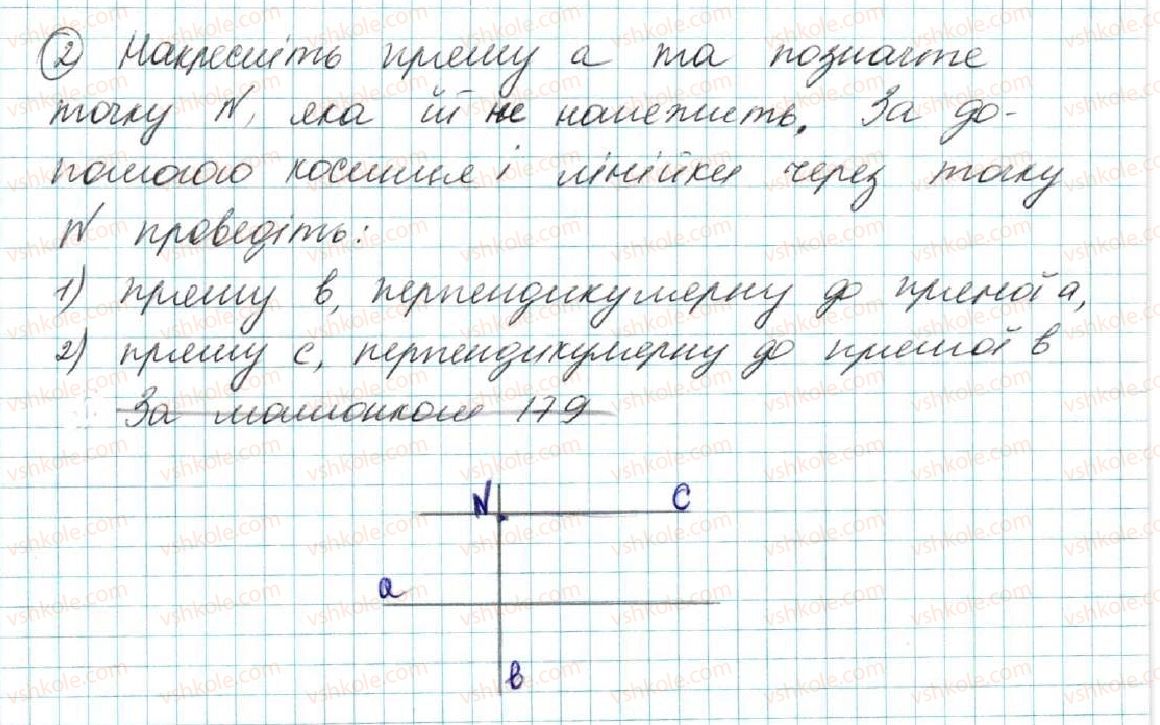 2) Накресліть пряму a та позначте
точку N, яка їй не належить. За до-
помогою косинця і лінійки через точку
N проведіть:
1) пряму в, перпендикулярну до прямої a,
2) пряму c, перпендикулярну до прямої в
За малюнком 179
N c
a
в
vshkole.com